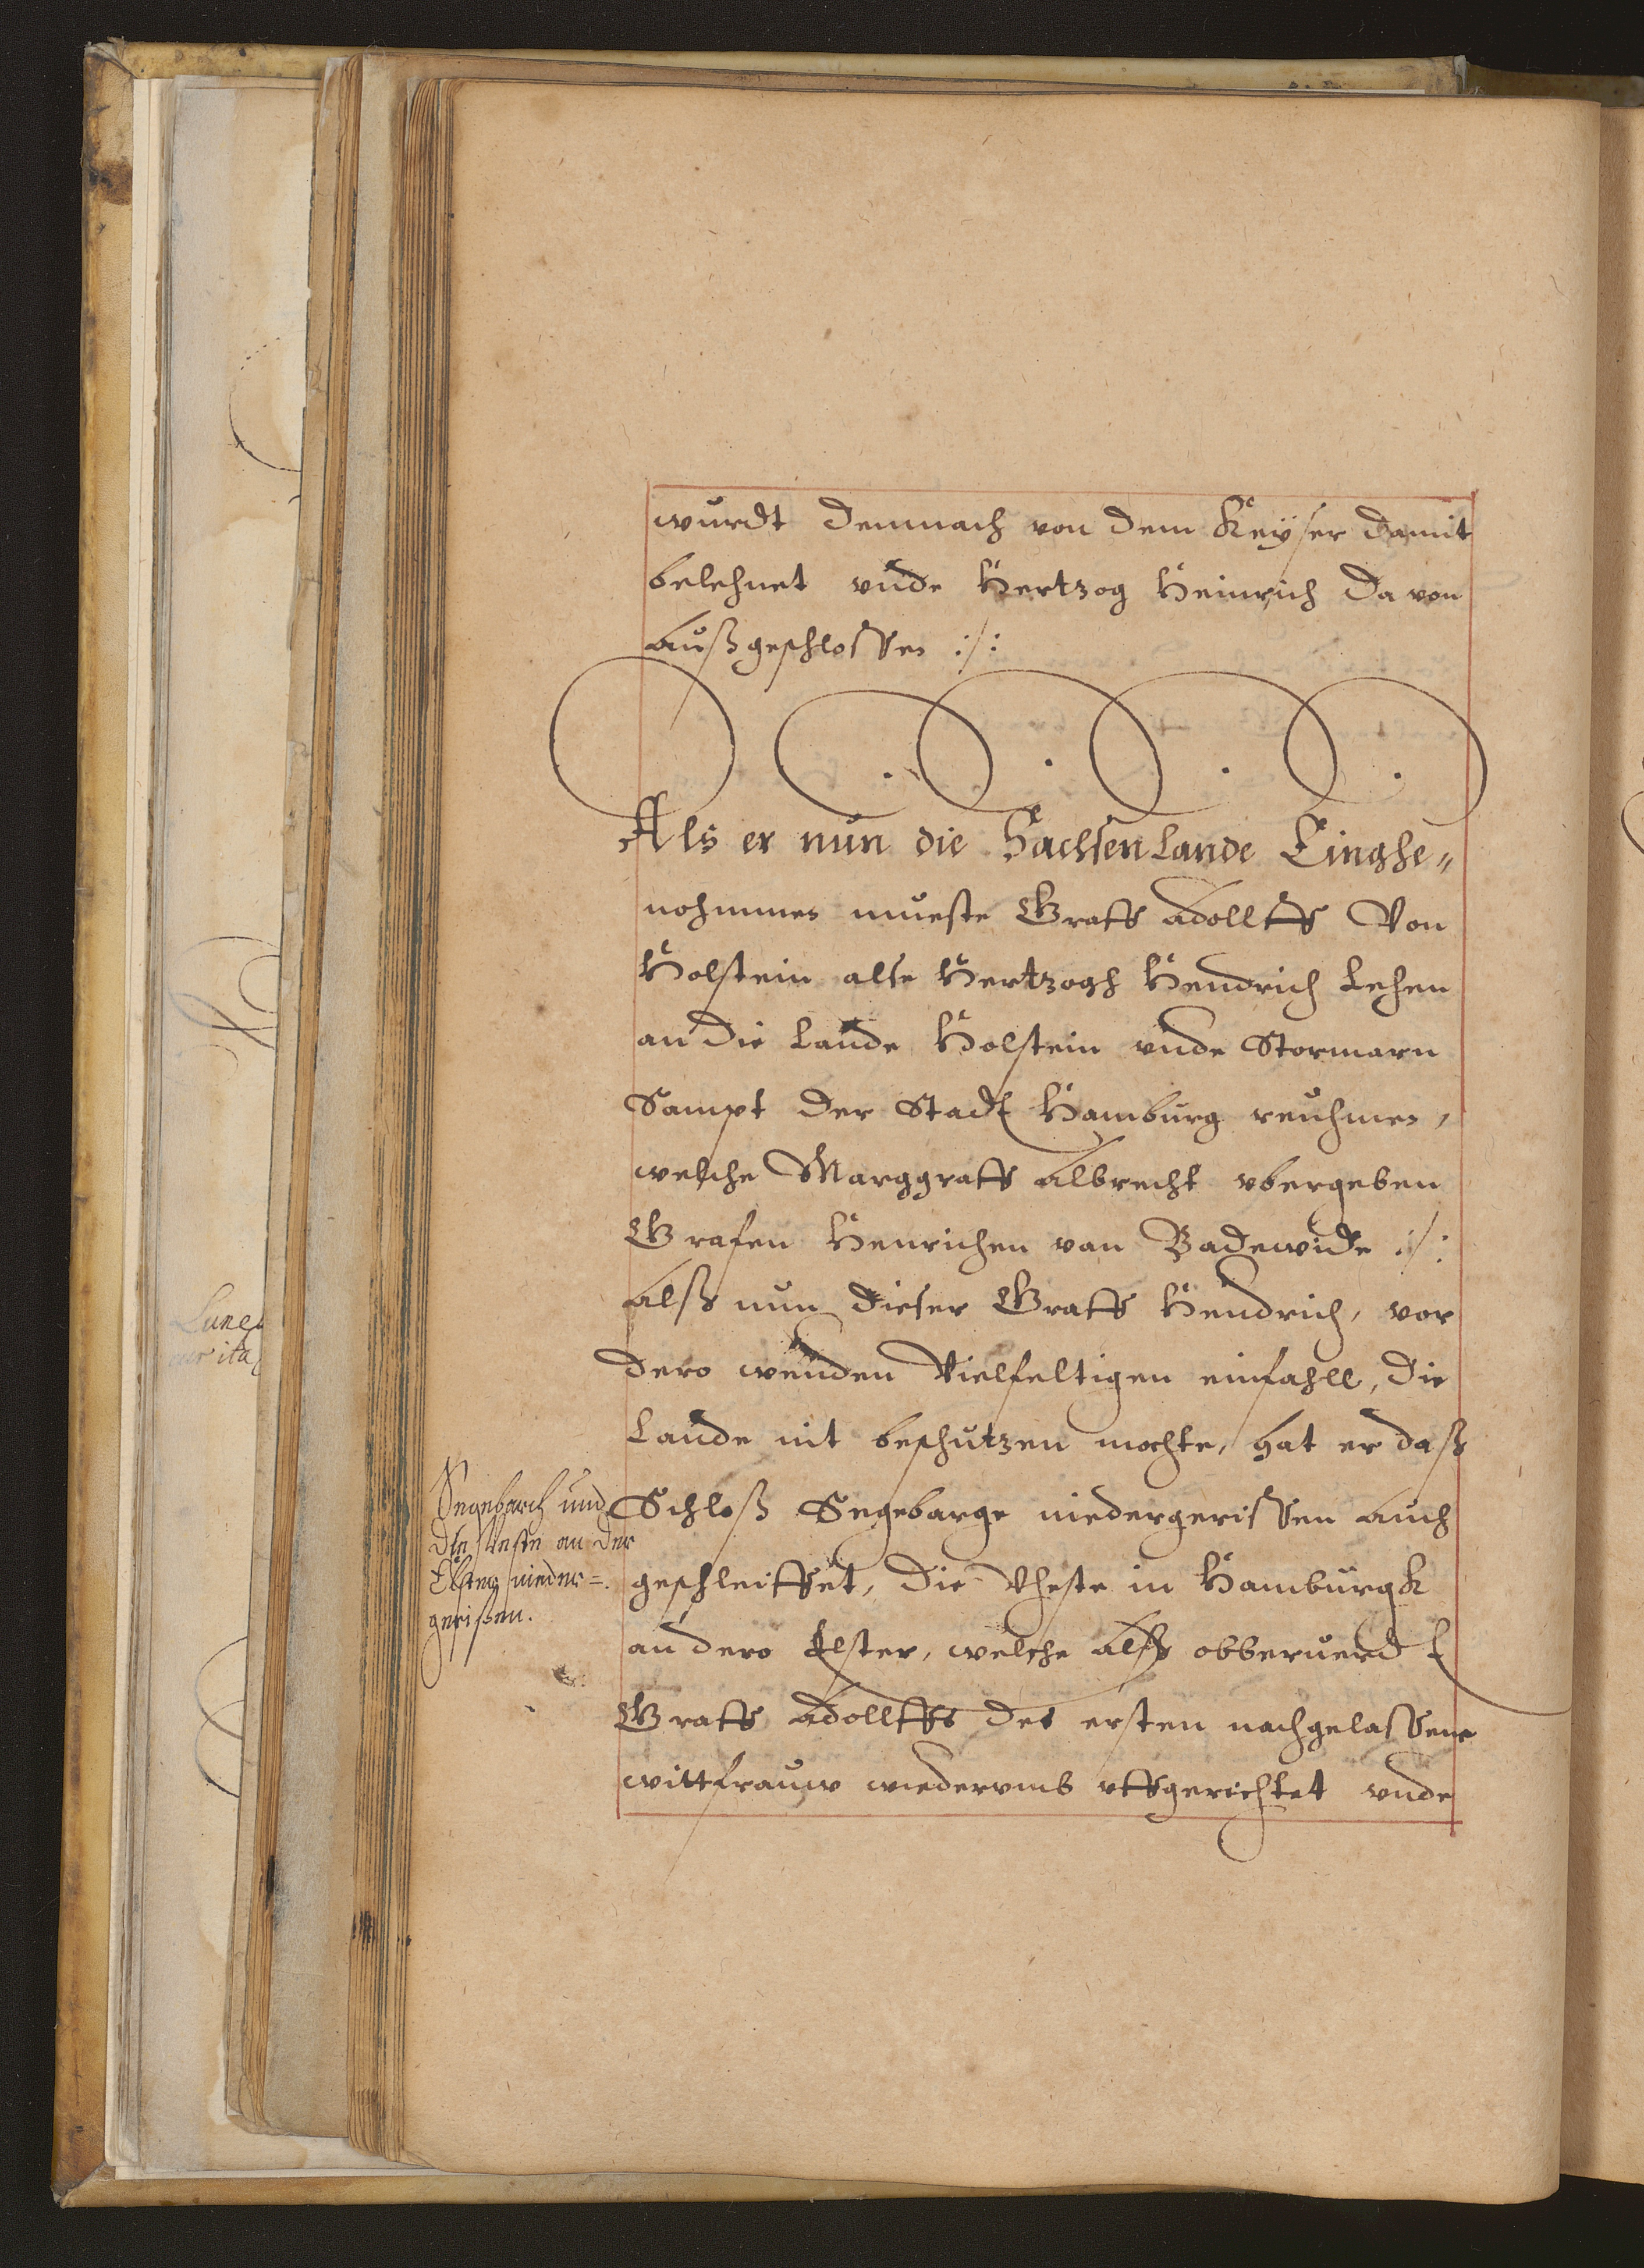 wurdt demnach von dem Keÿser damit
belehnet vnde Hertzog Heinrich da von
außgeschlossen :/:
Als er nun die Sachsen Lande Einghe„
nohmmen mueste Graff Adollff Von
Holstein alse Hertzogh Hendrich Lehen
an die Lande Holstein vnde Stormarn
Sampt der Stadt Hamburg reuhmen,
welche Marggraff Albrecht vbergeben
Grafen Henrichen van Badewide :/:
Alß nun dieser Graff Hendrich, vor
dero wenden Vielfeltigen einfahll, die
Lande nit beschutzen mochte, hat er daß
Schloß Segebarge niedergerissen auch
geschleiffet, die Vheste in Hamburgk
an dero Elster, welche Alß obberuerdt
Graff Adollffs des ersten nachgelassene
wittfrauw wiedervmb vffgerichtet vnde
Segebarch und
die Veste an der
Elster nieder=
gerißen.
Lune
ita